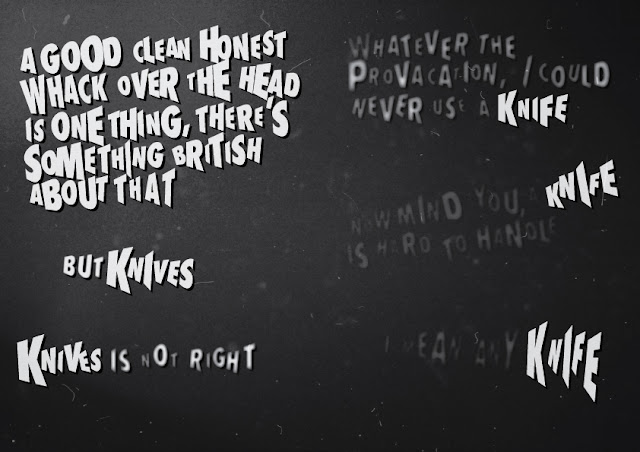 A GOOD CLEAN HONEST
WHACK OVER THE HEAD
IS ONE THING, THERE'S
SOMETHING BRITISH
ABOUT THAT
BUT KNIVES
KNIVES IS NOT RIGHT
WHATEVER THE
PROVACATION, I COULD
NEVER USE A KNIFE
NOW MIND YOU, A KNIFE
IS HARD TO HANDLE
I MEAN ANY KNIFE